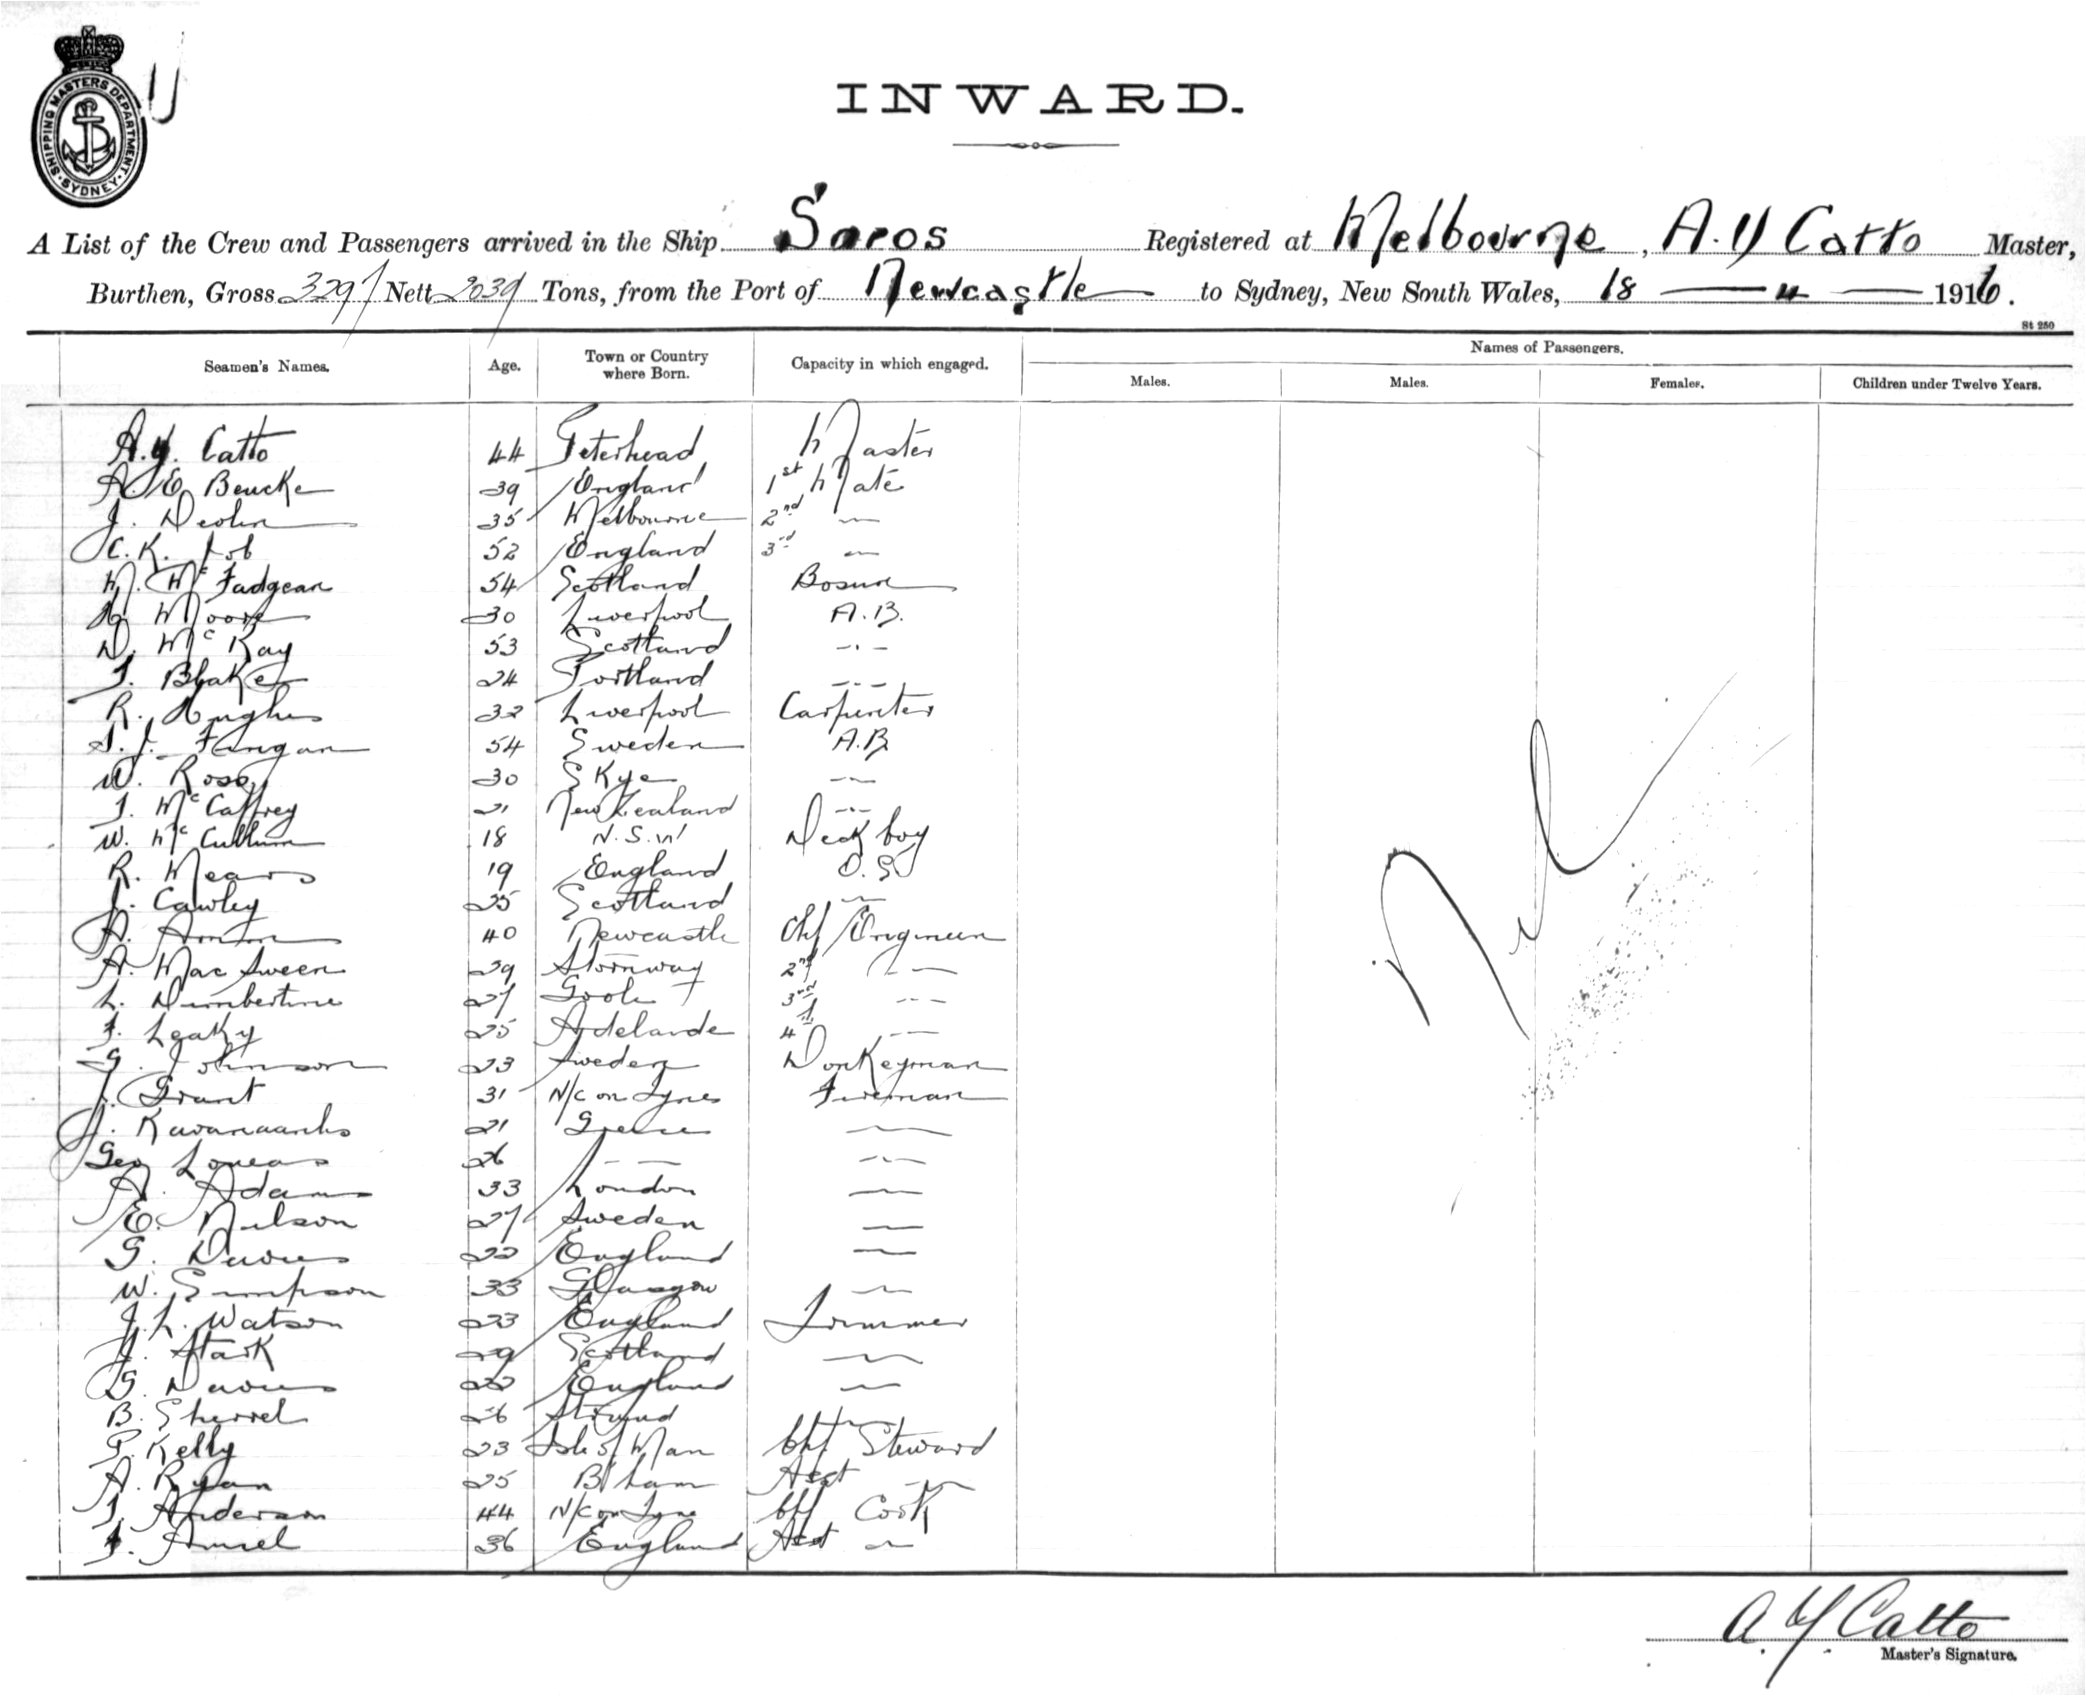 SHIPPING MASTERS DEPARTMENT · SYDNEY ·
INWARD.
A List of the Crew and Passengers arrived in the Ship Saros Registered at Melbourne, A. Y Catto Master,
Burthen, Gross 3291 Nett 2039 Tons, from the Port of Newcastle to Sydney, New South Wales, 18 — 4 — 1916.
St 250
Seamen's Names. Age. Town or Country where Born. Capacity in which engaged. Names of Passengers.
Males. Males. Females. Children under Twelve Years.
A.Y. Catto 44 Peterhead Master
A. E. Beucke 39 England 1st Mate
J. Devlin 35 Melbourne 2nd —
C. K. Job 52 England 3rd —
M. McFadgean 54 Scotland Bosun
H. Moore 30 Liverpool A.B.
D. McKay 53 Scotland - - -
J. Blake 24 Portland - - -
R. Hughes 32 Liverpool Carpenter
54 Sweden A.B
W. Rose 30 Skye - -
J. McCaffrey 21 New Zealand - - -
W. McCullum 18 N.S.W Deck boy
R. Mears 19 England O.S
J. Cawley 25 Scotland —
A. 40 Newcastle Chf Engineer
A. MacSween 29 Stornway 2nd - —
L. Dumbertine 27 Goole 3rd - - -
F. Leaky 25 Adelaide 4th - —
G. Johnson 23 Sweden Donkeyman
J. Grant 31 N/C on Tynes Fireman
J. 21 Greece —
Geo Loucas 26 - — - —
A. Adams 33 London —
E. Nilson 27 Sweden —
G. Davies 22 England —
W. Simpson 33 Glasgow —
J. L. Watson 23 England Trimmer
J. Stark 29 Scotland —
G. Davies 22 England —
B. Sherrel 26 Strand —
P. Kelly 23 Isle of Man Chf Steward
A. Ryan 25 B'ham Asst —
J. Anderson 44 N/C on Tyne Chf Cook
36 England Asst —
Nil
A. Y. Catto
Master's Signature.